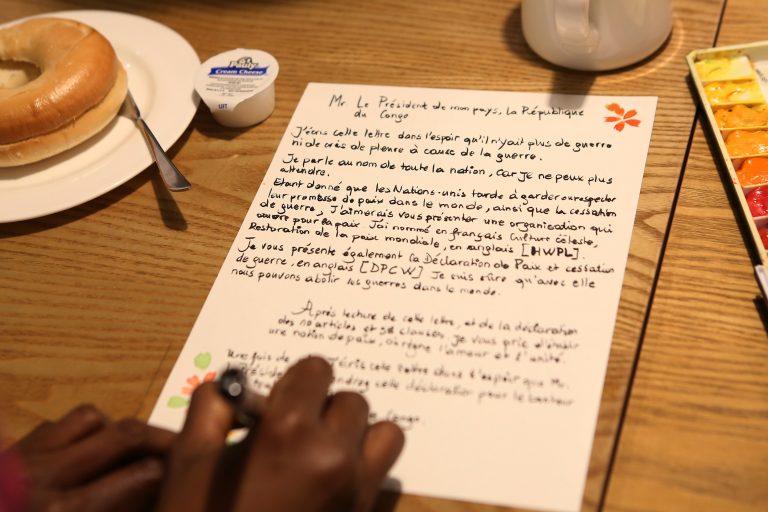 St Pauly
Cream Cheese
UIT
Mr Le Président de mon pays, la République
du Congo
J'écris cette lettre dans l'espoir qu'il n'yait plus de guerre
ni de crès de pleure à cause de la guerre.
Je parle au nom de toute la nation, car je ne peux plus
attendre.
Etant donné que les Nations-unis tarde à garder ou respecter
leur promesse de paix dans le monde, ainsi que la cessation
de guerre, J'aimerais vous présenter une organisation qui
œuvre pour la paix J'ai nommé en français Culture céleste,
Restoration de la paix mondiale, en anglais [HWPL].
Je vous présente également la Déclaration de Paix et cessation
de guerre, en anglais [DPCW] Je suis sûre qu'avec elle
nous pouvons abolir les guerres dans le monde.
Après lecture de cette lettre, et de la déclaration
des 10 articles et 38 clauses, je vous prie d'établir
une nation de paix, où règne l'amour et l'unité.
Une fois de j'écris cette lettre dans l'espoir que Mr.
cette déclaration pour le bonheur
Congo.